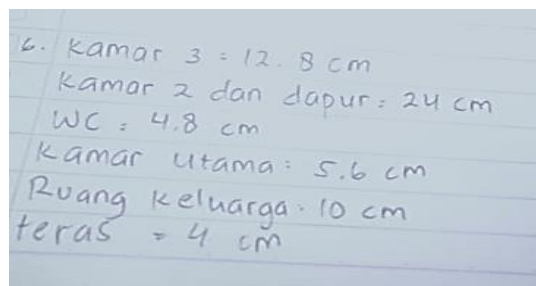 6. Kamar 3 = 12.8 cm
Kamar 2 dan dapur = 24 cm
WC = 4.8 cm
Kamar utama = 5.6 cm
Ruang keluarga = 10 cm
teras = 4 cm